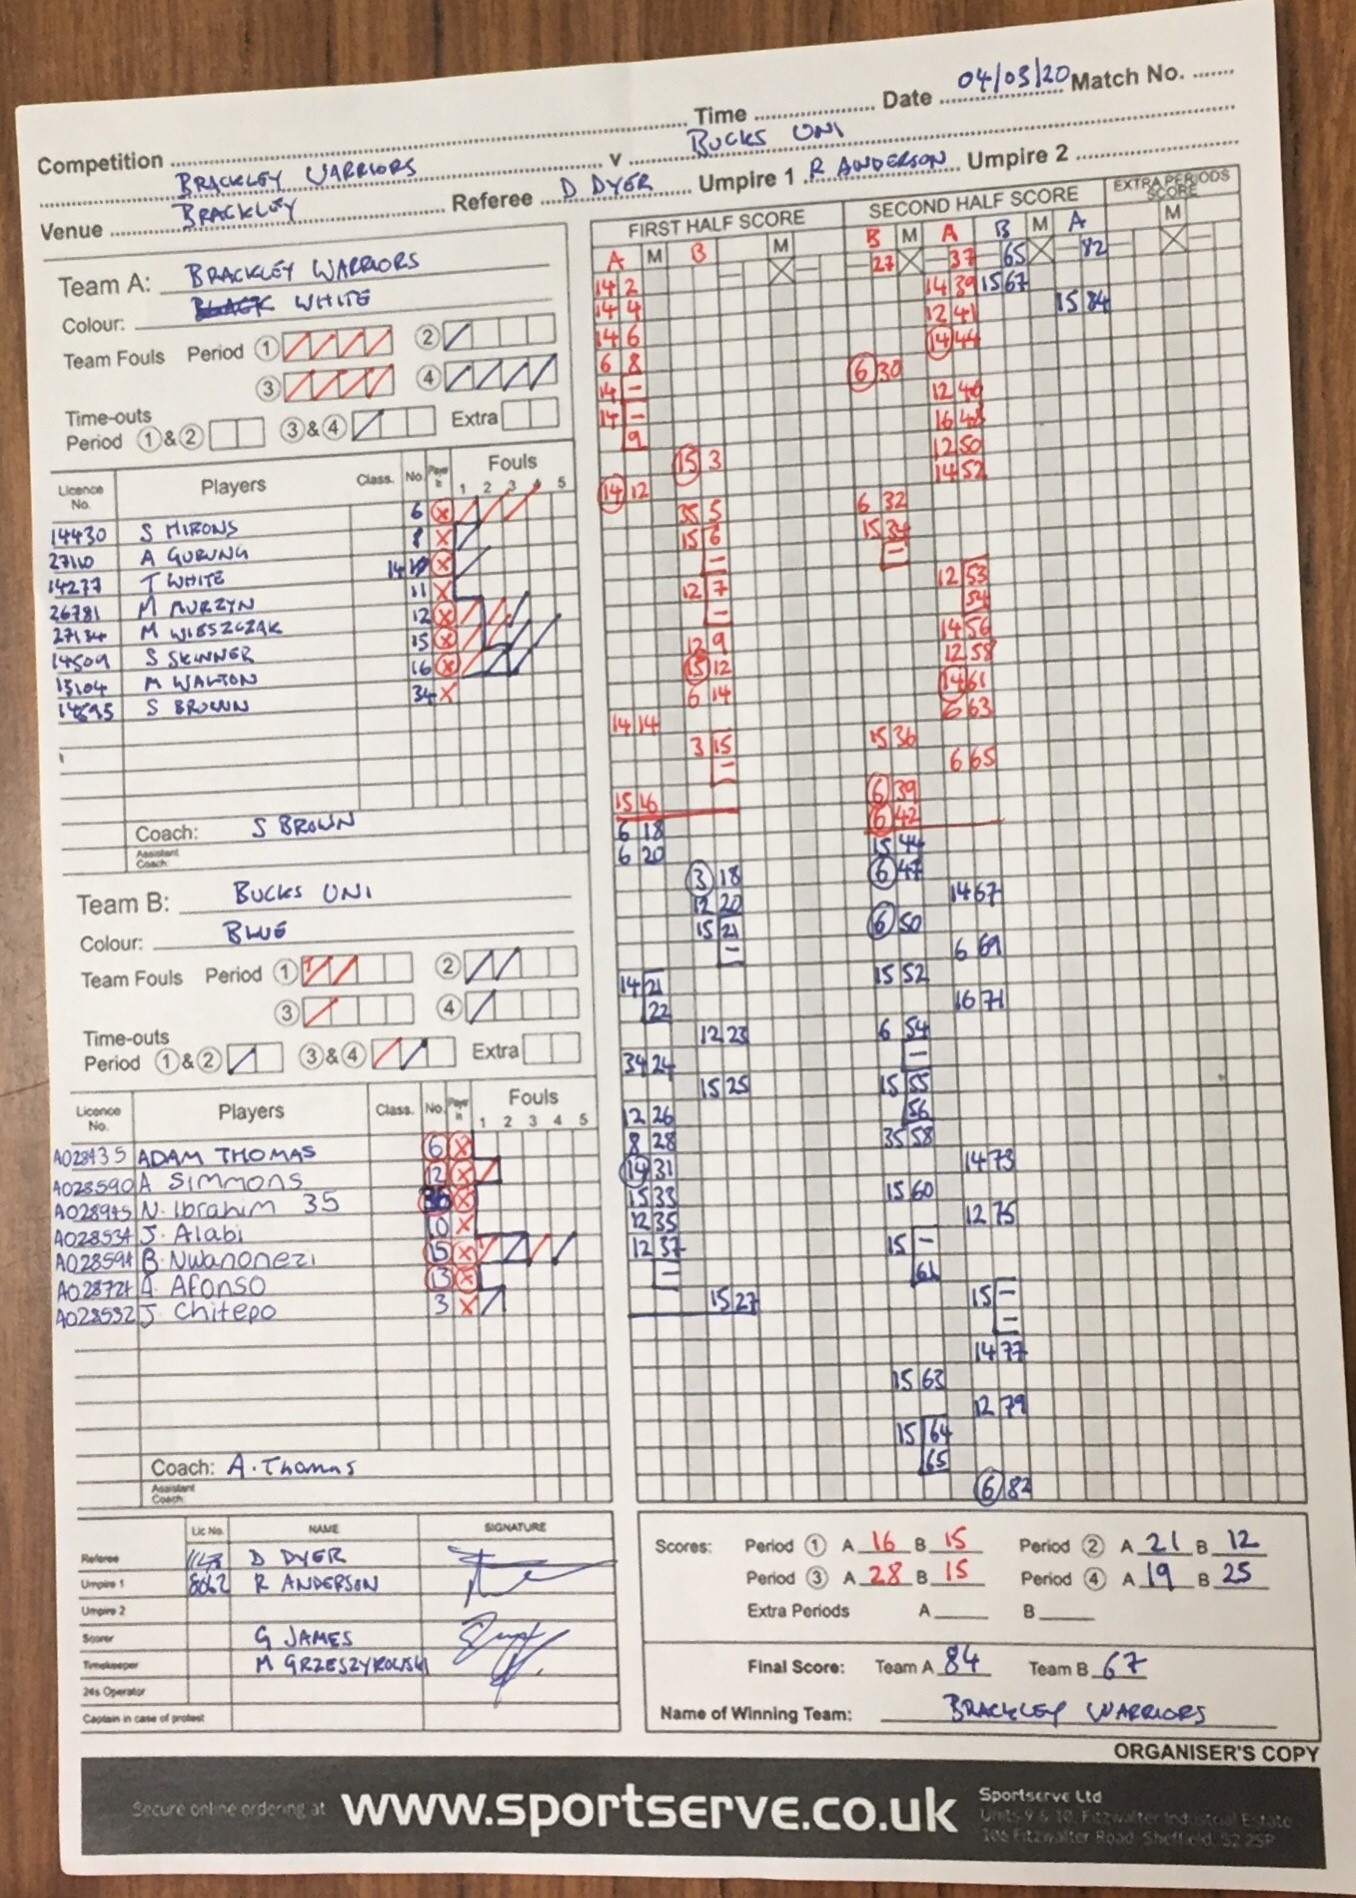 Competition Time Date 04/03/20 Match No.
BRACKLEY WARRIORS v BUCKS UNI
Venue BRACKLEY Referee D DYER Umpire 1 R ANDERSON Umpire 2
Team A: BRACKLEY WARRIORS
Colour: WHITE
Team Fouls Period 1 2
3 4
Time-outs
Period 1 & 2 3 & 4 Extra
Licence No. Players Class. No. Fouls
1 2 3 4 5
14430 S HIRONS 6
27110 A GURUNG 8
14277 T WHITE 14
26781 M BURZYN 11
27134 M WIESZCZAK 12
14509 S SKINNER 15
13104 M WALTON 16
S BROWN 34
Coach: S BROWN
Assistant Coach:
Team B: BUCKS UNI
Colour: BLUE
Team Fouls Period 1 2
3 4
Time-outs
Period 1 & 2 3 & 4 Extra
Licence No. Players Class. No. Fouls
1 2 3 4 5
ADAM THOMAS 6
A028590 A SIMMONS 12
A028945 N. Ibrahim 35
A028534 J. Alabi 10
A028594 B. Nwanonezi 15
A028721 A. Afonso 13
A028532 J. Chitepo 3
Coach: A. Thomas
Assistant Coach:
FIRST HALF SCORE
A M B M
14 2
14 4
14 6
6 8
14 –
14 –
9
15 3
14 12
35 5
15 6
–
12 7
–
12 9
15 12
6 14
14 14
3 15
–
15 16
6 18
6 20
3 18
12 20
15 21
–
14 21
22
12 23
34 24
15 25
12 26
8 28
14 31
15 33
12 35
12 37
–
15 27
SECOND HALF SCORE
B M A B M A
27 37 65 82
14 39 15 67
12 41 15 84
14 44
6 30
12 46
16 48
12 50
14 52
6 32
15 34
–
12 53
54
14 56
12 58
14 61
6 63
15 36
6 65
6 39
6 42
15 44
6 47
14 67
6 50
6 69
15 52
16 71
6 54
–
15 55
56
35 58
14 73
15 60
12 75
15 –
61
15 –
–
14 77
15 63
12 79
15 64
65
6 82
EXTRA PERIODS SCORE
M
Lic No. NAME SIGNATURE
Referee D DYER
Umpire 1 8062 R ANDERSON
Umpire 2
Scorer G JAMES
Timekeeper M GRZESZYKOWSKI
24s Operator
Captain in case of protest
Scores: Period 1 A 16 B 15 Period 2 A 21 B 12
Period 3 A 28 B 15 Period 4 A 19 B 25
Extra Periods A B
Final Score: Team A 84 Team B 67
Name of Winning Team: BRACKLEY WARRIORS
ORGANISER'S COPY
Secure online ordering at www.sportserve.co.uk
Sportserve Ltd
Units 9 & 10, Fitzwalter Industrial Estate
106 Fitzwalter Road, Sheffield, S2 2SP